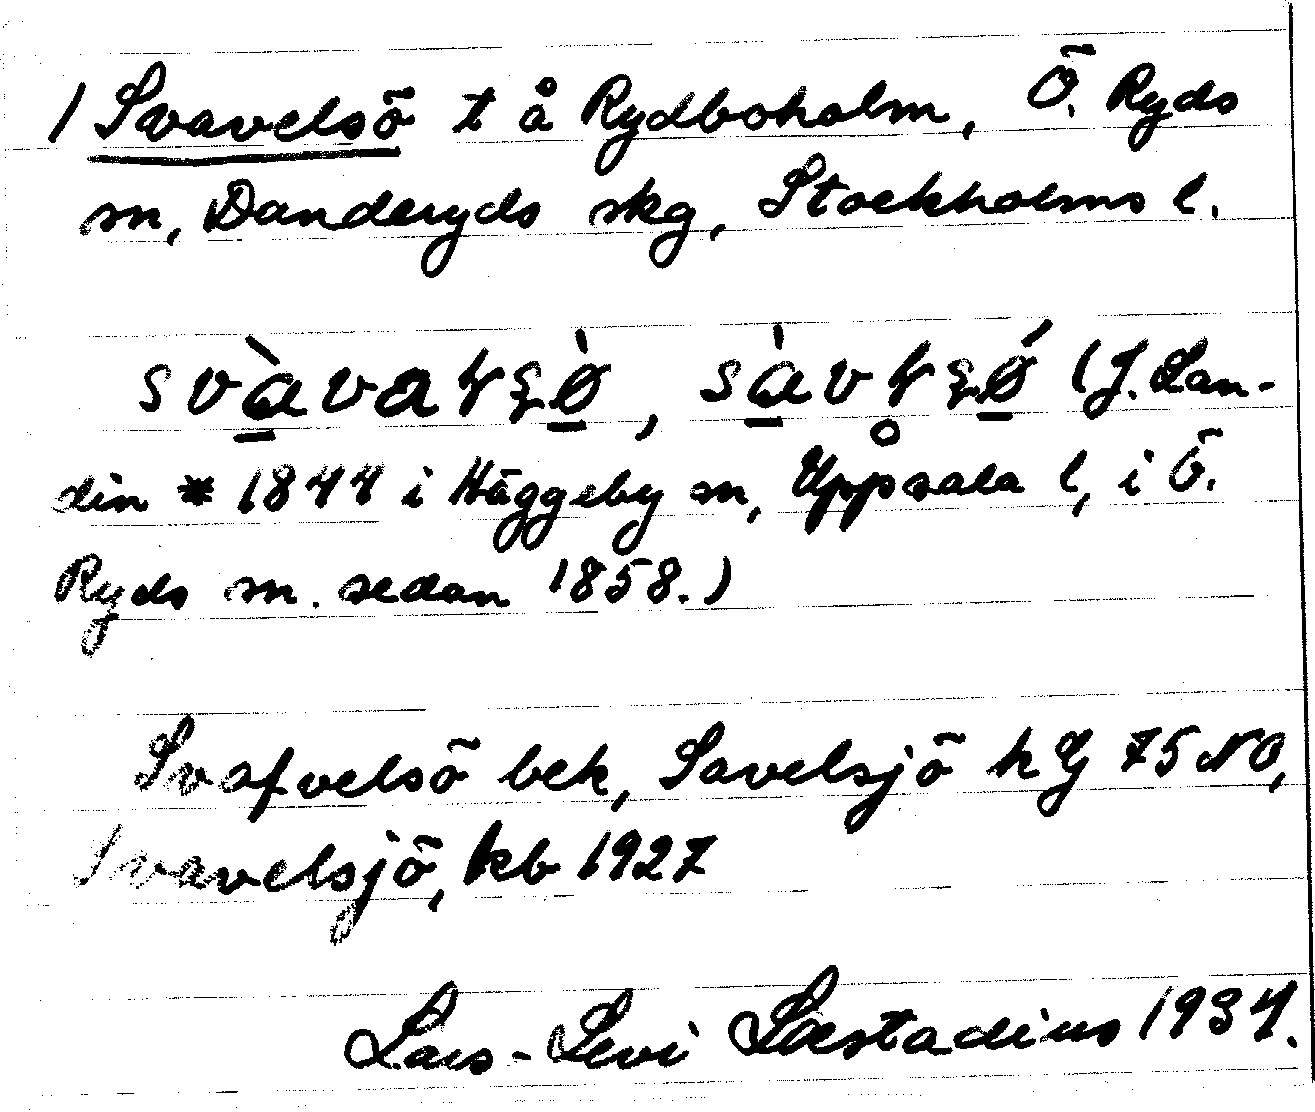 1 Svavelsö t å Rydboholm, Ö. Ryds
sn, Danderyds skg, Stockholms l.
(J. Lan-
din * 1844 i Häggeby sn, Uppsala l, i Ö.
Ryds sn. sedan 1858.)
Svafvelsö bek, Savelsjö h Y 75 NO,
Svavelsjö, kb 1927
Lars-Levi Læstadius 1934.